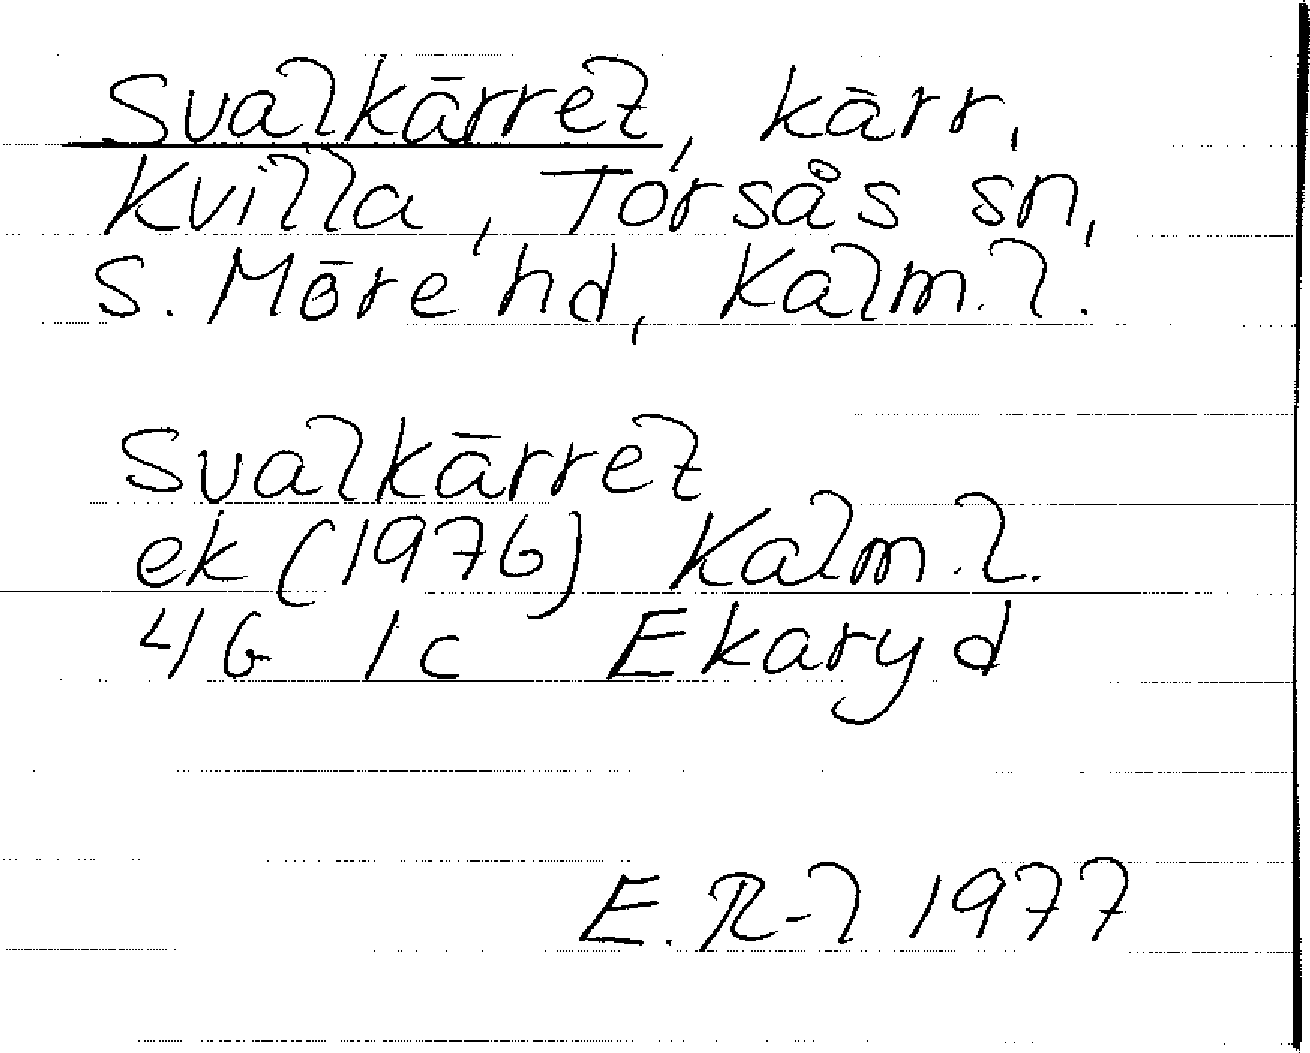 Svalkärret, kärr,
Kvilla, Torsås sn,
S. Möre hd, Kalm. l.
Svalkärret
ek (1976) Kalm. l.
4G 1c Ekaryd
E. R-l 1977